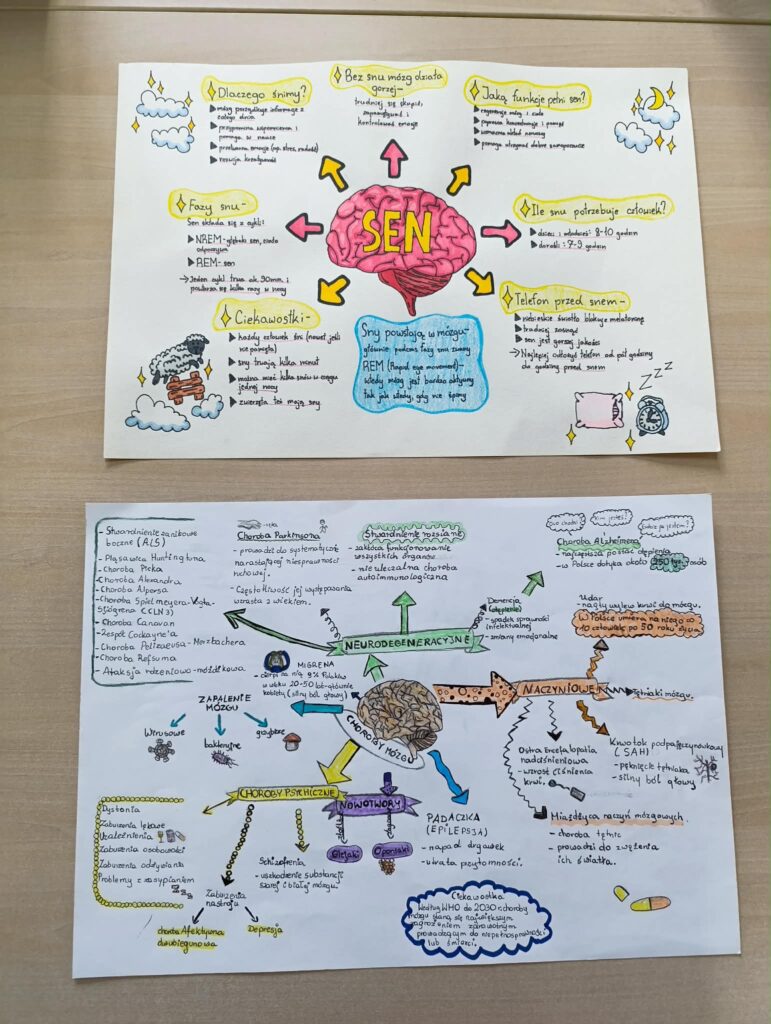 Bez snu mózg działa
gorzej-
trudniej się skupić,
zapamiętywać i
kontrolować emocje
Dlaczego śnimy?
mózg porządkuje informacje z
całego dnia
przypomina wspomnienia i
pomaga w nauce
przetwarza emocje (np. stres, radość)
rozwija kreatywność
Jaką funkcję pełni sen?
regeneruje mózg i ciało
poprawia koncentrację i pamięć
wzmacnia układ nerwowy
pomaga utrzymać dobre samopoczucie
Fazy snu-
Sen składa się z cykli:
NREM-głęboki sen, ciało
odpoczywa
REM- sen
→ Jeden cykl trwa ok. 90min. i
powtarza się kilka razy w nocy
SEN
Ile snu potrzebuje człowiek?
dzieci i młodzież: 8-10 godzin
dorośli: 7-9 godzin
Ciekawostki-
każdy człowiek śni (nawet jeśli
nie pamięta)
sny trwają kilka minut
można mieć kilka snów w ciągu
jednej nocy
zwierzęta też mają sny
Sny powstają w mózgu-
głównie podczas fazy snu zwanej
REM (Rapid eye movement)-
wtedy mózg jest bardzo aktywny
tak jak wtedy, gdy nie śpimy
Telefon przed snem-
niebieskie światło blokuje melatoninę
trudniej zasnąć
sen jest gorszej jakości
→ Najlepiej odłożyć telefon od pół godziny
do godziny przed snem
Z Z Z
- Stwardnienie zanikowe
boczne (ALS)
- Pląsawica Huntingtona
- Choroba Picka
- Choroba Alexandra
- Choroba Alpersa
- Choroba Spielmeyera-Vogta-
Sjögrena (CLN3)
- Choroba Canavan
- Zespół Cockayne'a
- Choroba Pelizaeusa - Merzbachera
- Choroba Refsuma
- Ataksja rdzeniowo-móżdżkowa
Choroba Parkinsona
- prowadzi do systematycznie
narastającej niesprawności
ruchowej.
- Częstotliwość jej występowania
wzrasta z wiekiem.
Stwardnienie rozsiane
- zakłóca funkcjonowanie
wszystkich organów
- nieuleczalna choroba
autoimmunologiczna
Kim jesteś?
Gdzie ja jestem?
Choroba Alzheimera
- najczęstsza postać otępienia
- w Polsce dotyka około 250 tys. osób
Demencja
(otępienie)
- spadek sprawności
intelektualnej
- zmiany emocjonalne
Udar
- nagły wylew krwi do mózgu.
W Polsce umiera na niego co
10 człowiek po 50 roku życia
NEURODEGENERACYJNE
MIGRENA
- cierpi na nią 9% Polaków
w wieku 20-50 lat-głównie
kobiety (silny ból głowy)
NACZYNIOWE
Tętniaki mózgu.
ZAPALENIE
MÓZGU
Wirusowe
bakteryjne
grzybicze
CHOROBY MÓZGU
Ostra Encefalopatia
nadciśnieniowa
- wzrost ciśnienia
krwi.
Krwotok podpajęczynówkowy
(SAH)
- pęknięcie tętniaka
- silny ból głowy
CHOROBY PSYCHICZNE
NOWOTWORY
Glejaki
Oponiaki
PADACZKA
(EPILEPSJA)
- napad drgawek
- utrata przytomności.
Miażdżyca naczyń mózgowych.
- choroba tętnic
- prowadzi do zwężenia
ich światła.
Dystonia
Zaburzenia lękowe
Uzależnienia
Zaburzenia osobowości
Zaburzenia odżywiania
Problemy z zasypianiem
Zaburzenia
nastroju
choroba Afektywna
dwubiegunowa
Depresja
Schizofrenia
- uszkodzenie substancji
szarej i białej mózgu.
Ciekawostka
Według WHO do 2030 r. choroby
mózgu staną się największym
zagrożeniem zdrowotnym
prowadzącym do niepełnosprawności
lub śmierci.